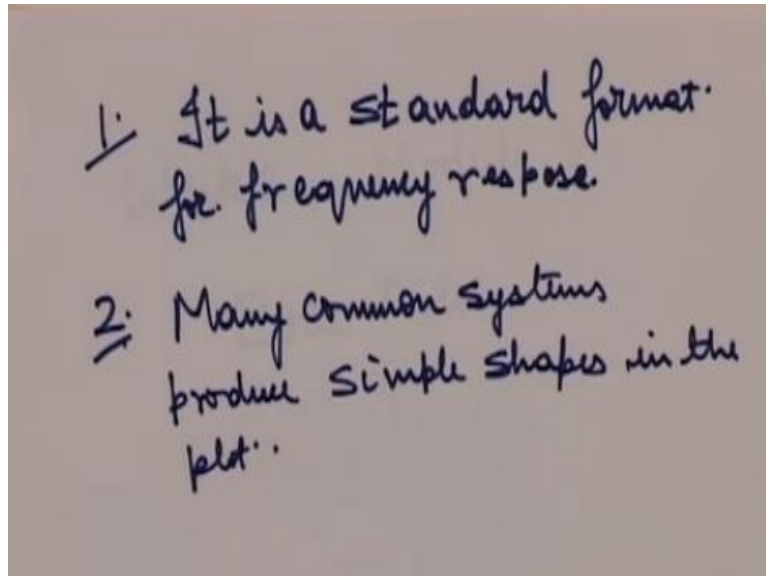 1. It is a standard format.
for. frequency respose.
2. Many common systems
produce simple shapes in the
plot..